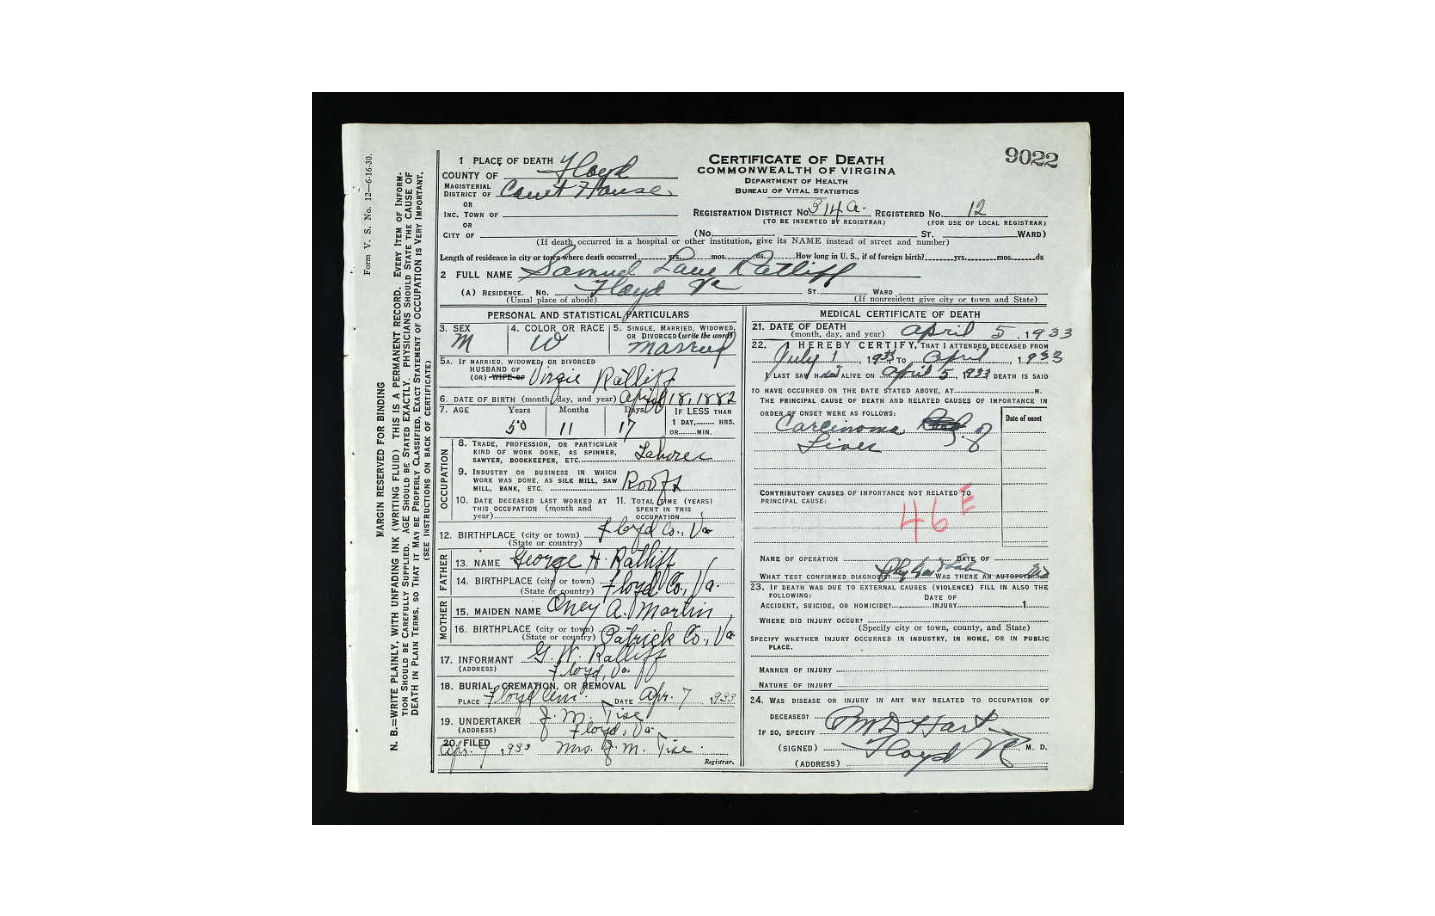 9022
1 PLACE OF DEATH
COUNTY OF Floyd
MAGISTERIAL DISTRICT OF Court House
OR
INC. TOWN OF
OR
CITY OF
CERTIFICATE OF DEATH
COMMONWEALTH OF VIRGINIA
DEPARTMENT OF HEALTH
BUREAU OF VITAL STATISTICS
REGISTRATION DISTRICT No. 314A. REGISTERED No. 12
(TO BE INSERTED BY REGISTRAR) (FOR USE OF LOCAL REGISTRAR)
(No. ST. WARD)
(If death occurred in a hospital or other institution, give its NAME instead of street and number)
Length of residence in city or town where death occurred yrs. mos. ds. How long in U. S., if of foreign birth? yrs. mos. ds
2 FULL NAME Samuel Lane Ratliff
(A) RESIDENCE. No. Floyd Va ST. WARD
(Usual place of abode) (If nonresident give city or town and State)
PERSONAL AND STATISTICAL PARTICULARS
3. SEX M
4. COLOR OR RACE W
5. SINGLE, MARRIED, WIDOWED, OR DIVORCED (write the word) Married
5A. IF MARRIED, WIDOWED, OR DIVORCED
HUSBAND OF
(OR) WIFE OF Virgie Ratliff
6. DATE OF BIRTH (month, day, and year) April 18, 1882
7. AGE Years 50 Months 11 Days 17 IF LESS THAN 1 DAY, HRS. OR MIN.
OCCUPATION
8. TRADE, PROFESSION, OR PARTICULAR
KIND OF WORK DONE, AS SPINNER,
SAWYER, BOOKKEEPER, ETC.
9. INDUSTRY OR BUSINESS IN WHICH
WORK WAS DONE, AS SILK MILL, SAW
MILL, BANK, ETC.
10. DATE DECEASED LAST WORKED AT THIS OCCUPATION (month and year)
11. TOTAL TIME (YEARS) SPENT IN THIS OCCUPATION
12. BIRTHPLACE (city or town) Floyd Co., Va
(State or country)
FATHER
13. NAME George H. Ratliff
14. BIRTHPLACE (city or town) Floyd Co., Va.
(State or country)
MOTHER
15. MAIDEN NAME Oney A. Martin
16. BIRTHPLACE (city or town) Patrick Co., Va
(State or country)
17. INFORMANT G. W. Ratliff
(ADDRESS) Floyd, Va.
18. BURIAL, CREMATION, OR REMOVAL
PLACE Floyd Cem. DATE Apr. 7, 1933
19. UNDERTAKER J. M. Tise
(ADDRESS) Floyd, Va.
20. FILED Apr. 9, 1933 Mrs. J. M. Tise.
Registrar.
MEDICAL CERTIFICATE OF DEATH
21. DATE OF DEATH
(month, day, and year) April 5, 1933
22. I HEREBY CERTIFY, THAT I ATTENDED DECEASED FROM
July 1, 1933 TO April, 1933
I LAST SAW H ALIVE ON April 5, 1933 DEATH IS SAID
TO HAVE OCCURRED ON THE DATE STATED ABOVE, AT M.
THE PRINCIPAL CAUSE OF DEATH AND RELATED CAUSES OF IMPORTANCE IN
ORDER OF ONSET WERE AS FOLLOWS: Date of onset
Carcinoma of
Liver
CONTRIBUTORY CAUSES OF IMPORTANCE NOT RELATED TO
PRINCIPAL CAUSE:
46 E
NAME OF OPERATION DATE OF
WHAT TEST CONFIRMED DIAGNOSIS? WAS THERE AN AUTOPSY? No
23. IF DEATH WAS DUE TO EXTERNAL CAUSES (VIOLENCE) FILL IN ALSO THE
FOLLOWING:
ACCIDENT, SUICIDE, OR HOMICIDE? DATE OF INJURY 1
WHERE DID INJURY OCCUR?
(Specify city or town, county, and State)
SPECIFY WHETHER INJURY OCCURRED IN INDUSTRY, IN HOME, OR IN PUBLIC
PLACE.
MANNER OF INJURY
NATURE OF INJURY
24. WAS DISEASE OR INJURY IN ANY WAY RELATED TO OCCUPATION OF
DECEASED?
IF SO, SPECIFY
(SIGNED) M. D.
(ADDRESS) Floyd Va
Form V. S. No. 12—6-16-30.
MARGIN RESERVED FOR BINDING
N. B.=WRITE PLAINLY, WITH UNFADING INK (WRITING FLUID) THIS IS A PERMANENT RECORD. EVERY ITEM OF INFORM-
TION SHOULD BE CAREFULLY SUPPLIED. AGE SHOULD BE STATED EXACTLY. PHYSICIANS SHOULD STATE THE CAUSE OF
DEATH IN PLAIN TERMS, SO THAT IT MAY BE PROPERLY CLASSIFIED, EXACT STATEMENT OF OCCUPATION IS VERY IMPORTANT.
(SEE INSTRUCTIONS ON BACK OF CERTIFICATE)